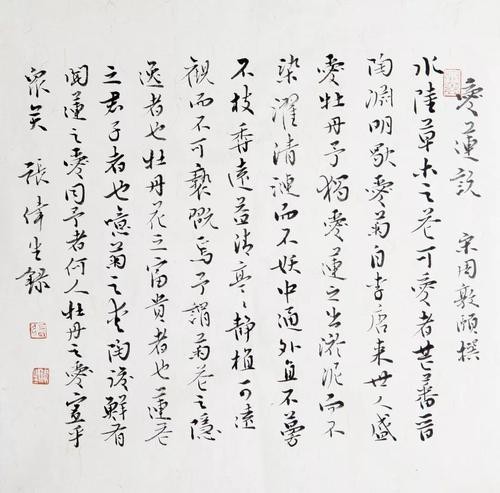 愛蓮說 宋周敦頤撰
水陸草木之花可愛者甚蕃晉
陶淵明獨愛菊自李唐來世人盛
愛牡丹予獨愛蓮之出淤泥而不
染濯清漣而不妖中通外直不蔓
不枝香遠益清亭々靜植可遠
觀而不可褻翫焉予謂菊花之隱
逸者也牡丹花之富貴者也蓮花
之君子者也噫菊之愛陶後鮮有
聞蓮之愛同予者何人牡丹之愛宜乎
眾矣 張偉生錄